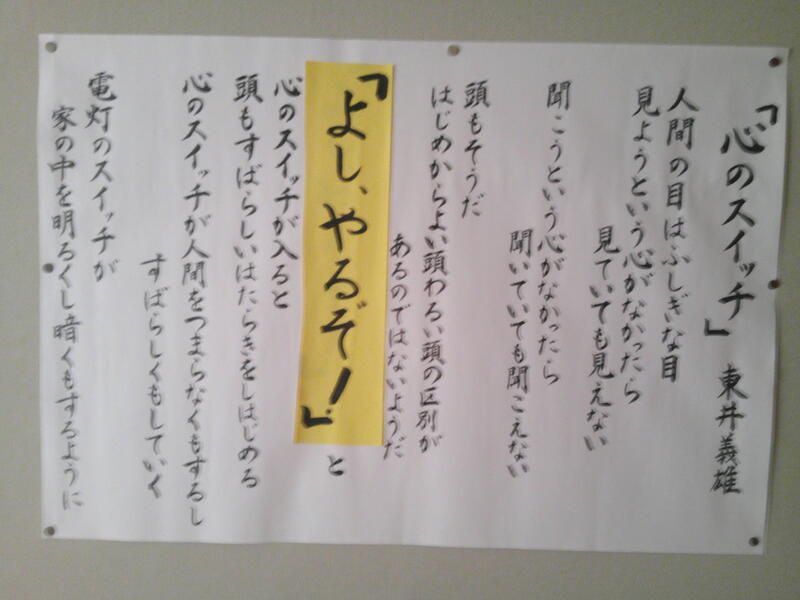 「心のスイッチ」 東井義雄
人間の目はふしぎな目
見ようという心がなかったら
見ていても見えない
聞こうという心がなかったら
聞いていても聞こえない
頭もそうだ
はじめからよい頭わるい頭の区別が
あるのではないようだ
「よし、やるぞ!」と
心のスイッチが入ると
頭もすばらしいはたらきをしはじめる
心のスイッチが人間をつまらなくもするし
すばらしくもしていく
電灯のスイッチが
家の中を明るくし暗くもするように